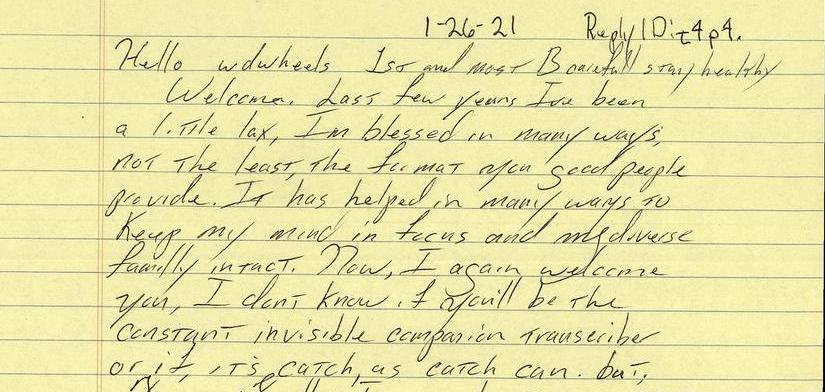 1-26-21 Reply ID: z4p4.
Hello wdwheels 1st and most B carefull stay healthy
Welcome. Last few years Ive been
a little lax, Im blessed in many ways,
not the least, the format you good people
provide. It has helped in many ways to
Keep my mind in focus and my diverse
family intact. Now, I again welcome
you, I dont know if you'll be the
constant invisible companion transcriber
or if, it's catch, as catch can. but,